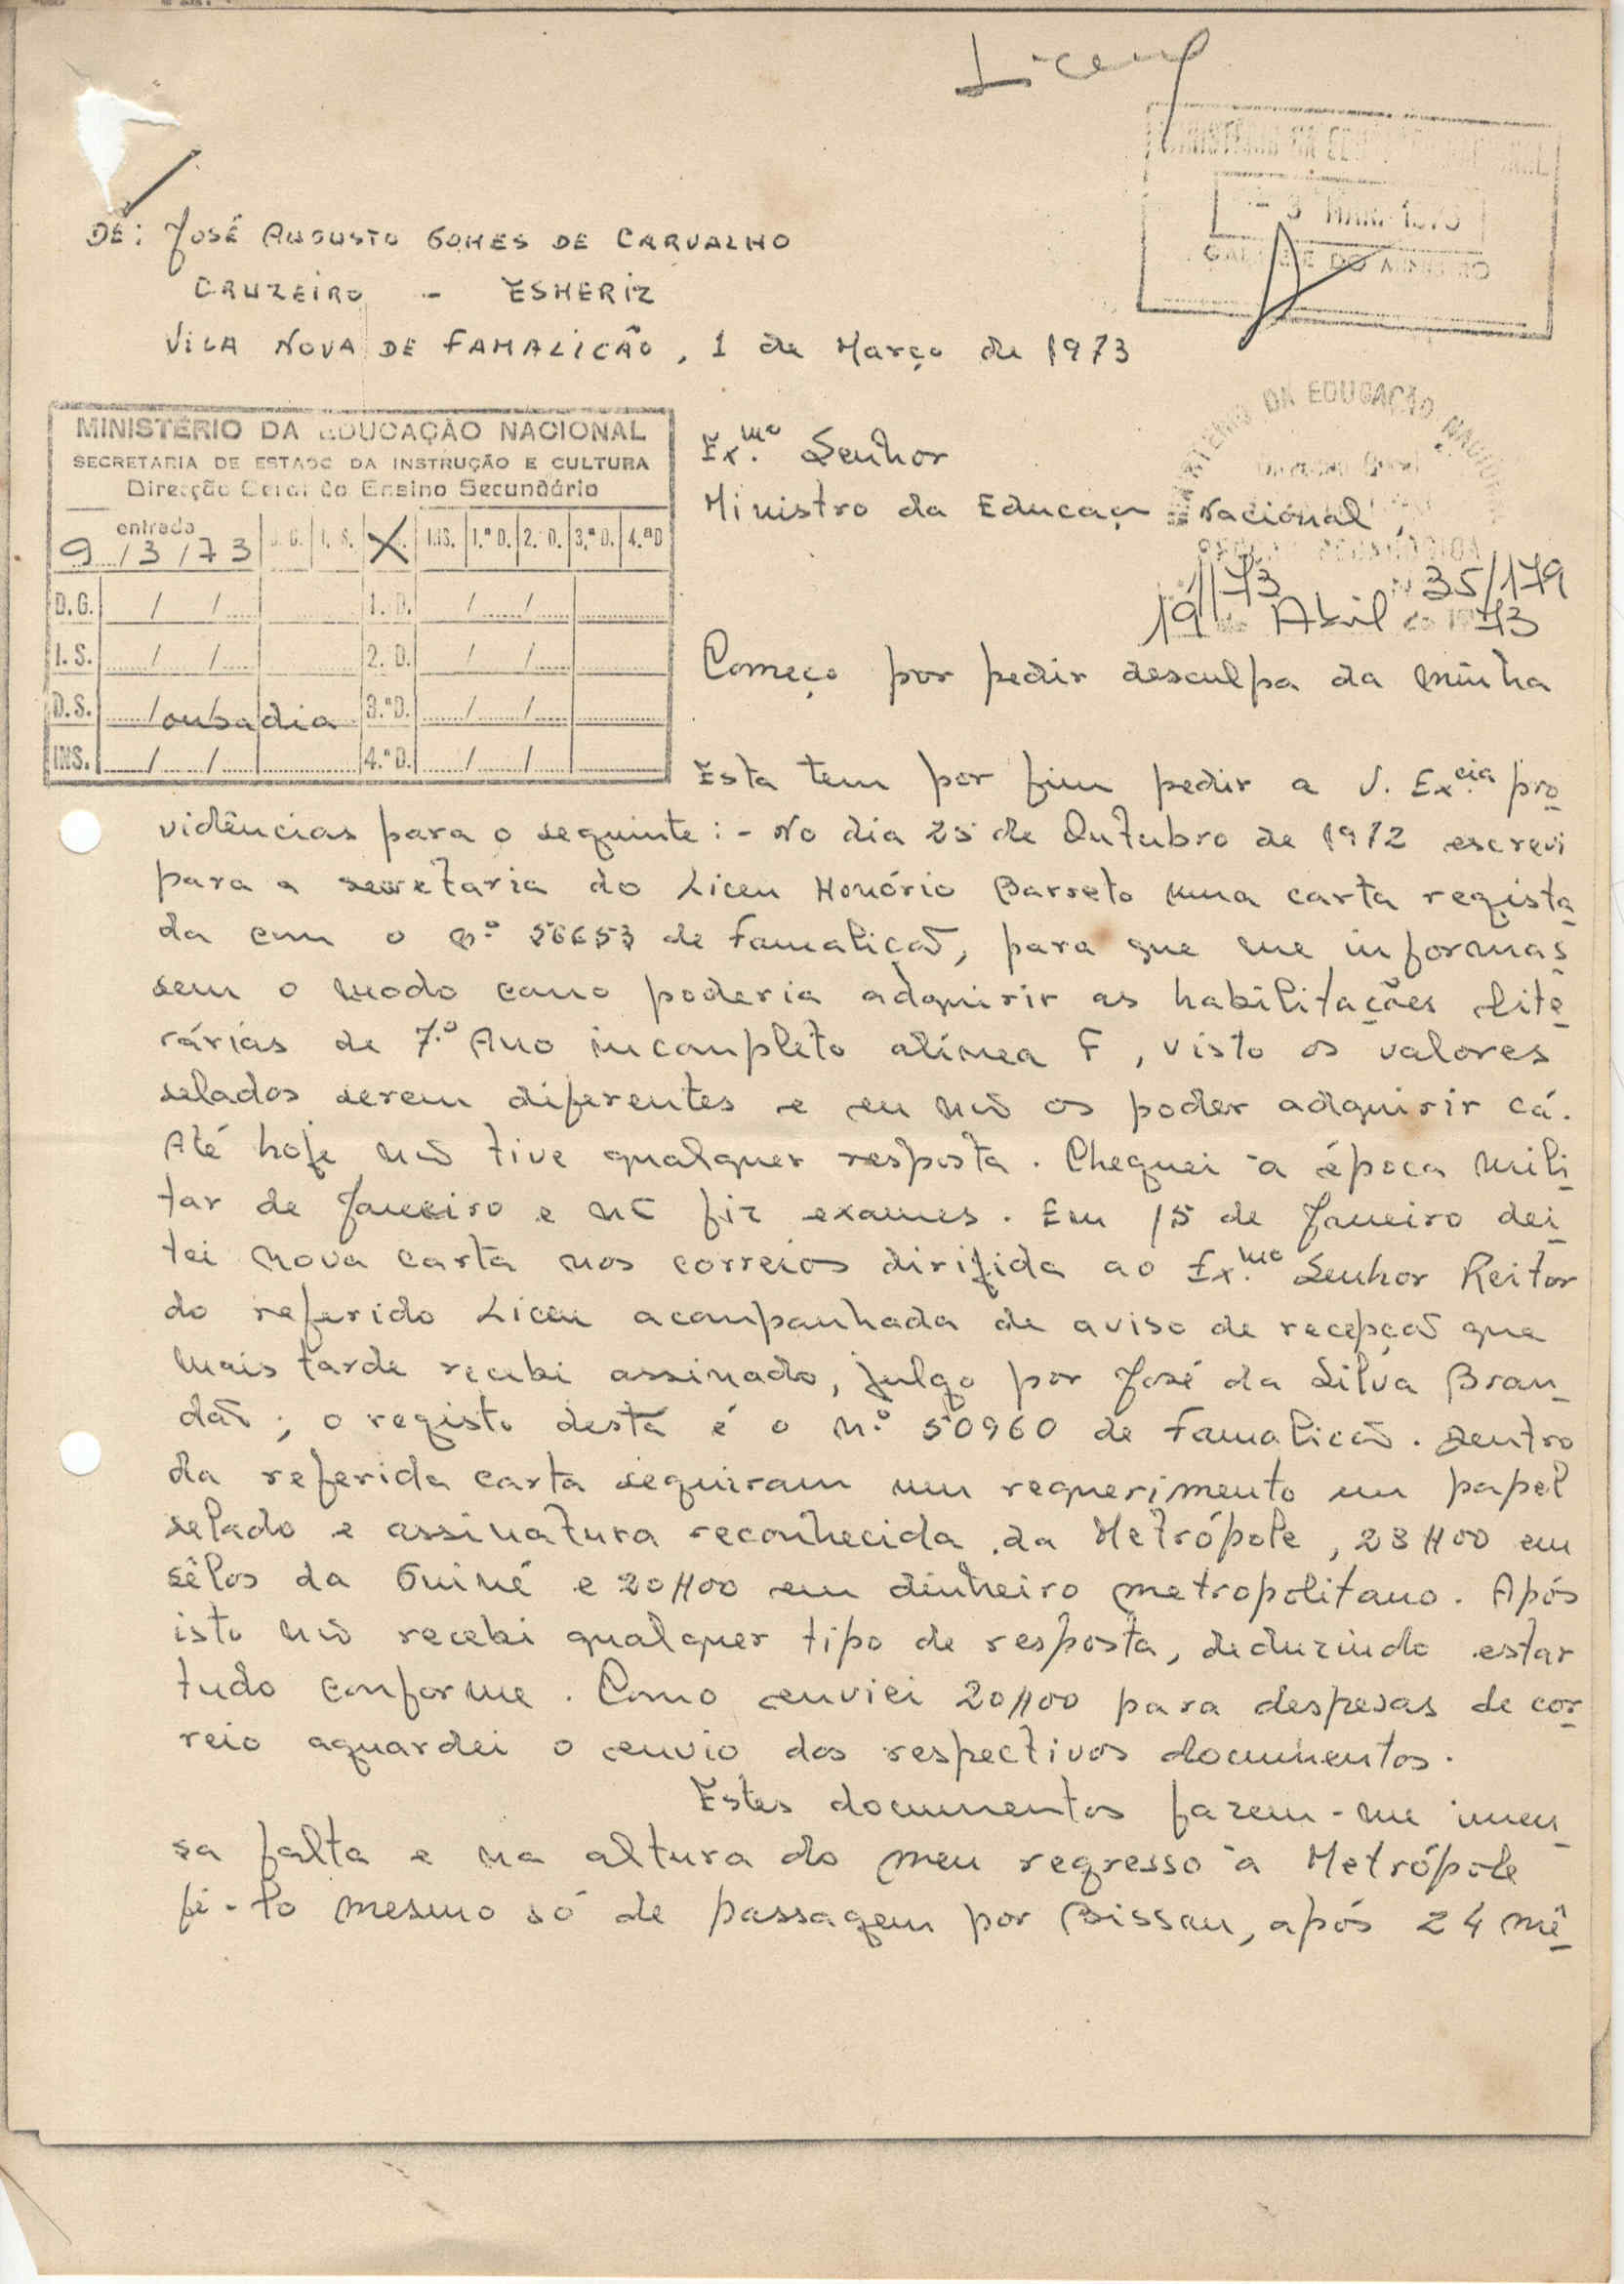 Liceu
MINISTÉRIO DA EDUCAÇÃO NACIONAL
- 3 MAR. 1973
GABINETE DO MINISTRO
DE: José Augusto Gomes de Carvalho
Cruzeiro - Esmeriz
Vila Nova de Famalicão, 1 de Março de 1973
MINISTÉRIO DA EDUCAÇÃO NACIONAL
SECRETARIA DE ESTADO DA INSTRUÇÃO E CULTURA
Direcção Geral do Ensino Secundário
entrada
9/3/73 D. G. I. S. X INS. 1.ª D. 2. D. 3.ª D. 4.ª D
D.G. / / 1. D. / /
I. S. / / 2. D. / /
D.S. / / 3.ª D. / /
INS. / / 4.ª D. / /
MINISTÉRIO DA EDUCAÇÃO NACIONAL
Direcção Geral
SECÇÃO PEDAGÓGICA
1/73 N.º 35/179
19 de Abril de 1973
Ex.mo Senhor
Ministro da Educaçã Nacional,
Começo por pedir desculpa da minha
ousadia
Esta tem por fim pedir a V. Ex.cia pro-
vidências para o seguinte: - No dia 25 de Outubro de 1972 escrevi
para a secretaria do Liceu Honório Barreto uma carta regista-
da com o n.º 56653 de Famalicão, para que me informas-
sem o modo como poderia adquirir as habilitações lite-
rárias de 7.º Ano incompleto alínea F, visto os valores
selados serem diferentes e eu não os poder adquirir cá.
Até hoje não tive qualquer resposta. Cheguei à época mili-
tar de Janeiro e não fiz exames. Em 15 de Janeiro dei-
tei nova carta nos correios dirigida ao Ex.mo Senhor Reitor
do referido Liceu acompanhada de aviso de recepção que
mais tarde recebi assinado, julgo por José da Silva Bran-
dão; o registo desta é o n.º 50960 de Famalicão. Dentro
da referida carta seguiram um requerimento em papel
selado e assinatura reconhecida da Metrópole, 28$00 em
sêlos da Guiné e 20$00 em dinheiro metropolitano. Após
isto não recebi qualquer tipo de resposta, deduzindo estar
tudo conforme. Como enviei 20$00 para despesas de cor-
reio aguardei o envio dos respectivos documentos.
Estes documentos fazem-me imen-
sa falta e na altura do meu regresso à Metrópole
fi-lo mesmo só de passagem por Bissau, após 24 mê-